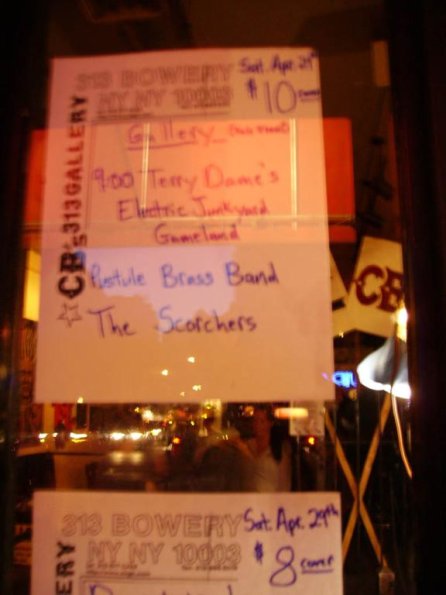 313 BOWERY
NY NY 10003
Sat. Apr. 29th
$10 cover
CB's 313 GALLERY
Gallery
9:00 Terry Dame's
Electric Junkyard
Gameland
Pustule Brass Band
The Scorchers
CB
313 BOWERY
NY NY 10003
Sat. Apr. 29th
$8 cover
ERY